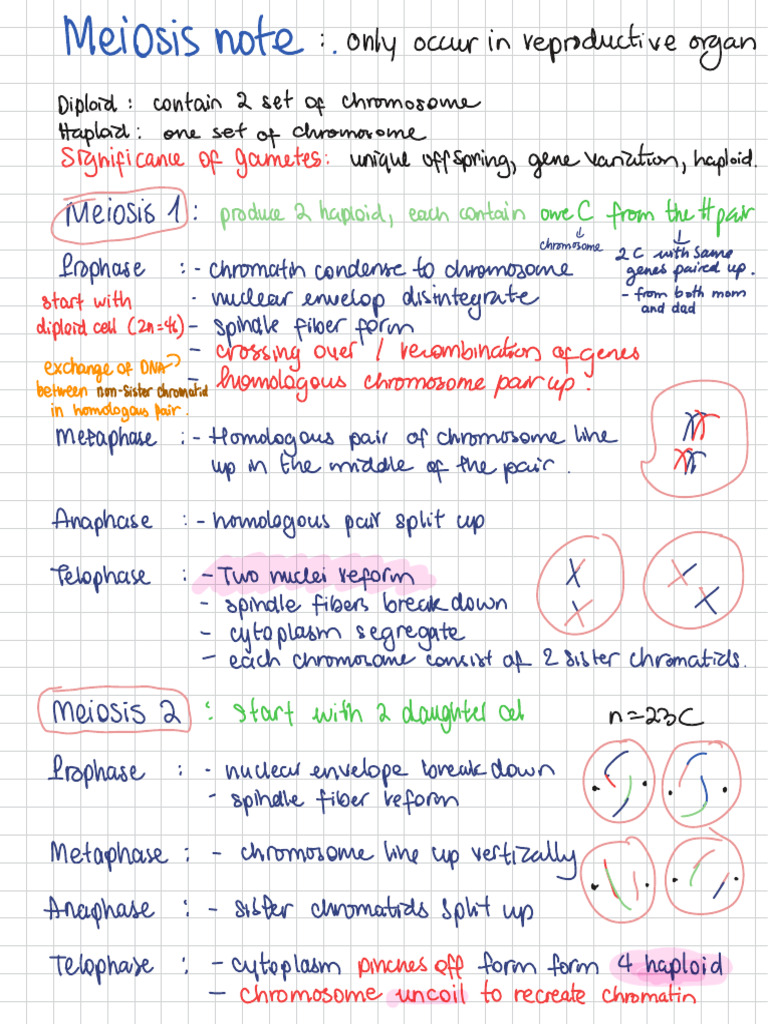 Meiosis note :. only occur in reproductive organ
Diploid : contain 2 set of chromosome
Haploid : one set of chromosome
Significance of gametes: unique offspring, gene variation, haploid.
Meiosis 1 : produce 2 haploid, each contain one C from the H pair
↓ chromosome
↓ 2 C with same
genes paired up.
- from both mom
and dad
Prophase : - chromatin condense to chromosome
- nuclear envelop disintegrate
- spindle fiber form
- crossing over / recombination of genes
- homologous chromosome pair up.
start with
diploid cell (2n=46)
exchange of DNA
between non-sister chromatid
in homologous pair.
Metaphase : - Homologous pair of chromosome line
up in the middle of the pair.
Anaphase : - homologous pair split up
Telophase : - Two nuclei reform
- spindle fibers break down
- cytoplasm segregate
- each chromosome consist of 2 sister chromatids.
Meiosis 2 : start with 2 daughter cel n=23C
Prophase : - nuclear envelope break down
- spindle fiber reform
Metaphase : - chromosome line up vertically
Anaphase : - sister chromatids split up
Telophase : - cytoplasm pinches off form form 4 haploid
- chromosome uncoil to recreate chromatin